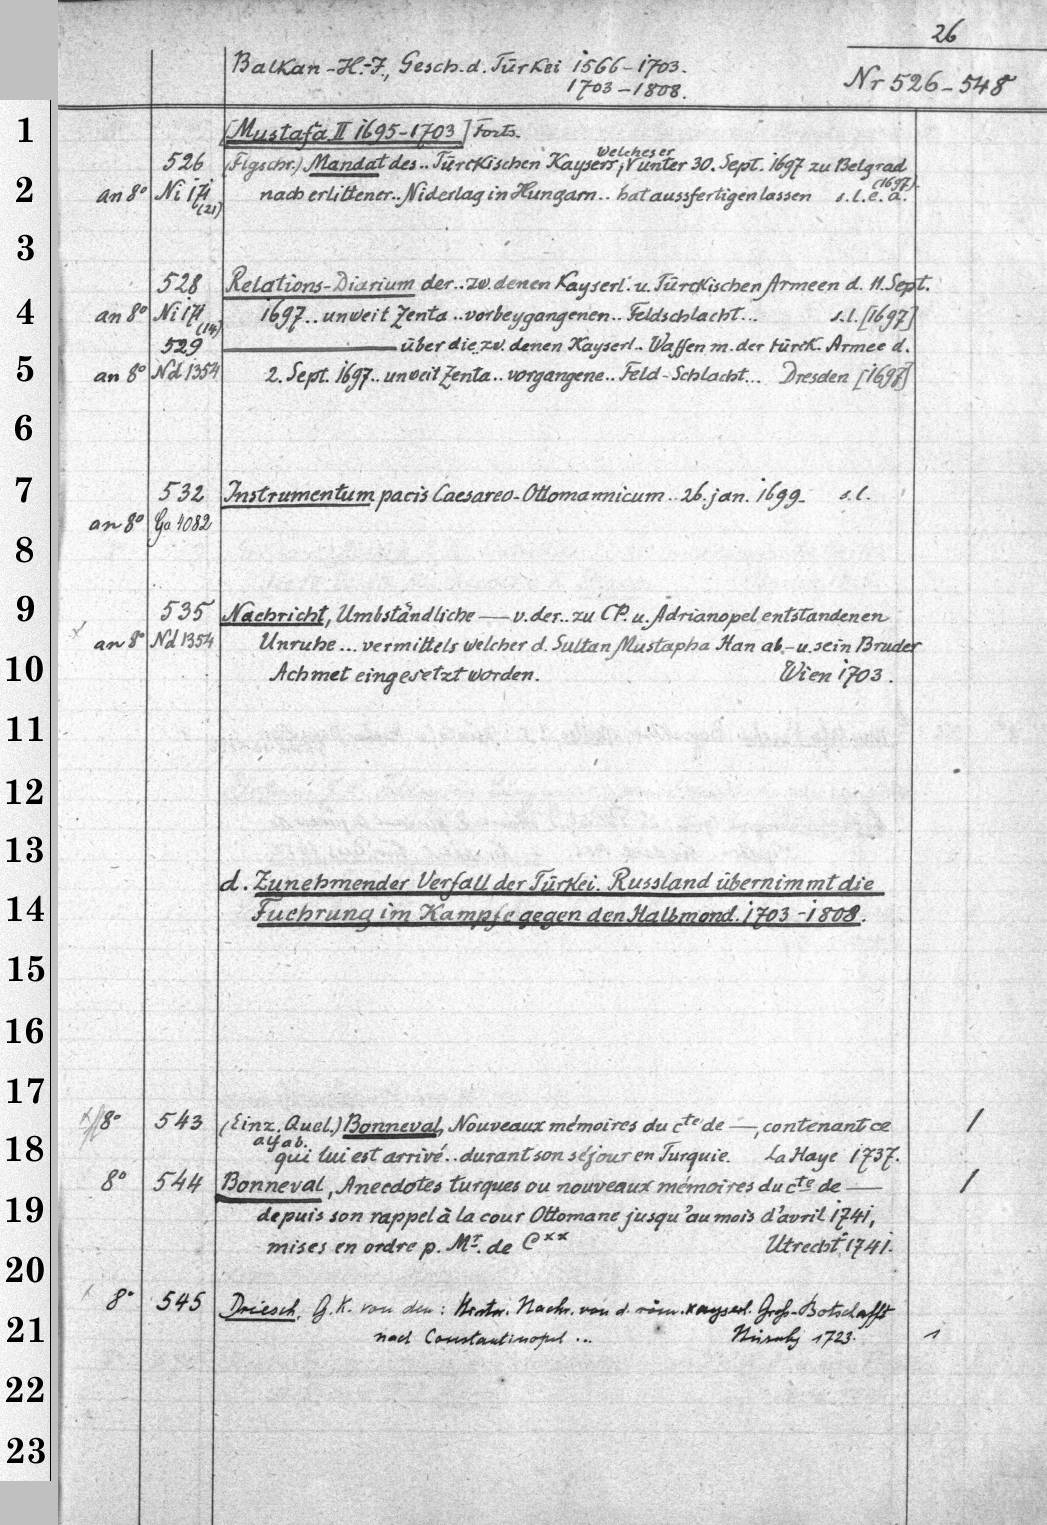 26
Balkan-H.-J., Gesch. d. Türkei 1566-1703.
1703-1808.
Nr 526-548
1
[Mustafa II 1695-1703] Forts.
526 (Flgschr.) Mandat des.. Türckischen Kaysers, welches er unter 30. Sept. 1697 zu Belgrad
2
an 8° Ni 174 (21) nach erlittener.. Niderlag in Hungarn.. hat aussfertigen lassen s.l.e.a. (1697).
3
528 Relations-Diarium der.. zw. denen Kayserl. u. Türckischen Armeen d. 11. Sept.
4
an 8° Ni 174 (14) 1697.. unweit Zenta.. vorbeygangenen.. Feldschlacht... s.l. [1697]
529 ——— über die zw. denen Kayserl.. Waffen m. der türck. Armee d.
5
an 8° Nd 1354 2. Sept. 1697.. unweit Zenta.. vorgangene.. Feld-Schlacht... Dresden [1697]
6
7
532 Instrumentum pacis Caesareo-Ottomannicum.. 26. jan. 1699. s.l.
an 8° Ga 4082
8
9
535 Nachricht, Umbständliche — v. der.. zu CP. u. Adrianopel entstandenen
an 8° Nd 1354 Unruhe... vermittels welcher d. Sultan Mustapha Han ab- u. sein Bruder
10
Achmet eingesetzt worden. Wien 1703.
11
12
13
d. Zunehmender Verfall der Türkei. Russland übernimmt die
14
Fuehrung im Kampfe gegen den Halbmond. 1703-1808.
15
16
17
8° 543 (Einz. Quel.) Bonneval, Nouveaux mémoires du cte de —, contenant ce 1
18
qui lui est arrivé.. durant son séjour en Turquie. La Haye 1737.
8° 544 Bonneval, Anecdotes turques ou nouveaux mémoires du cte de — 1
19
depuis son rappel à la cour Ottomane jusqu'au mois d'avril 1741,
mises en ordre p. Mr. de C** Utrecht 1741.
20
8° 545 Driesch, G. K. von den: Histor. Nachr. von d. röm. kayserl. Groß-Botschafft
21
nach Constantinopel ... Nürnbg 1723. 1
22
23